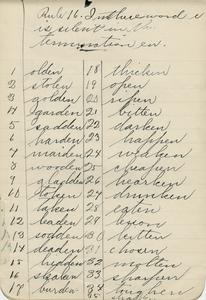 Rule 16. In these words e
is silent in the
termination en.
1 olden 18 thicken
2 stolen 19 open
3 golden 20 ripen
4 garden 21 bitten
5 sadden 22 darken
6 harden 23 happen
7 maiden 24 weaken
8 wooden 25 cheapen
9 gladden 26 hearken
10 token 27 drunken
11 taken 28 eaten
12 laden 29
13 sodden 30 bitten
14 deaden 31 chosen
15 hidden 32 molten
16 33 sharpen
17 burden 34 toughen
35